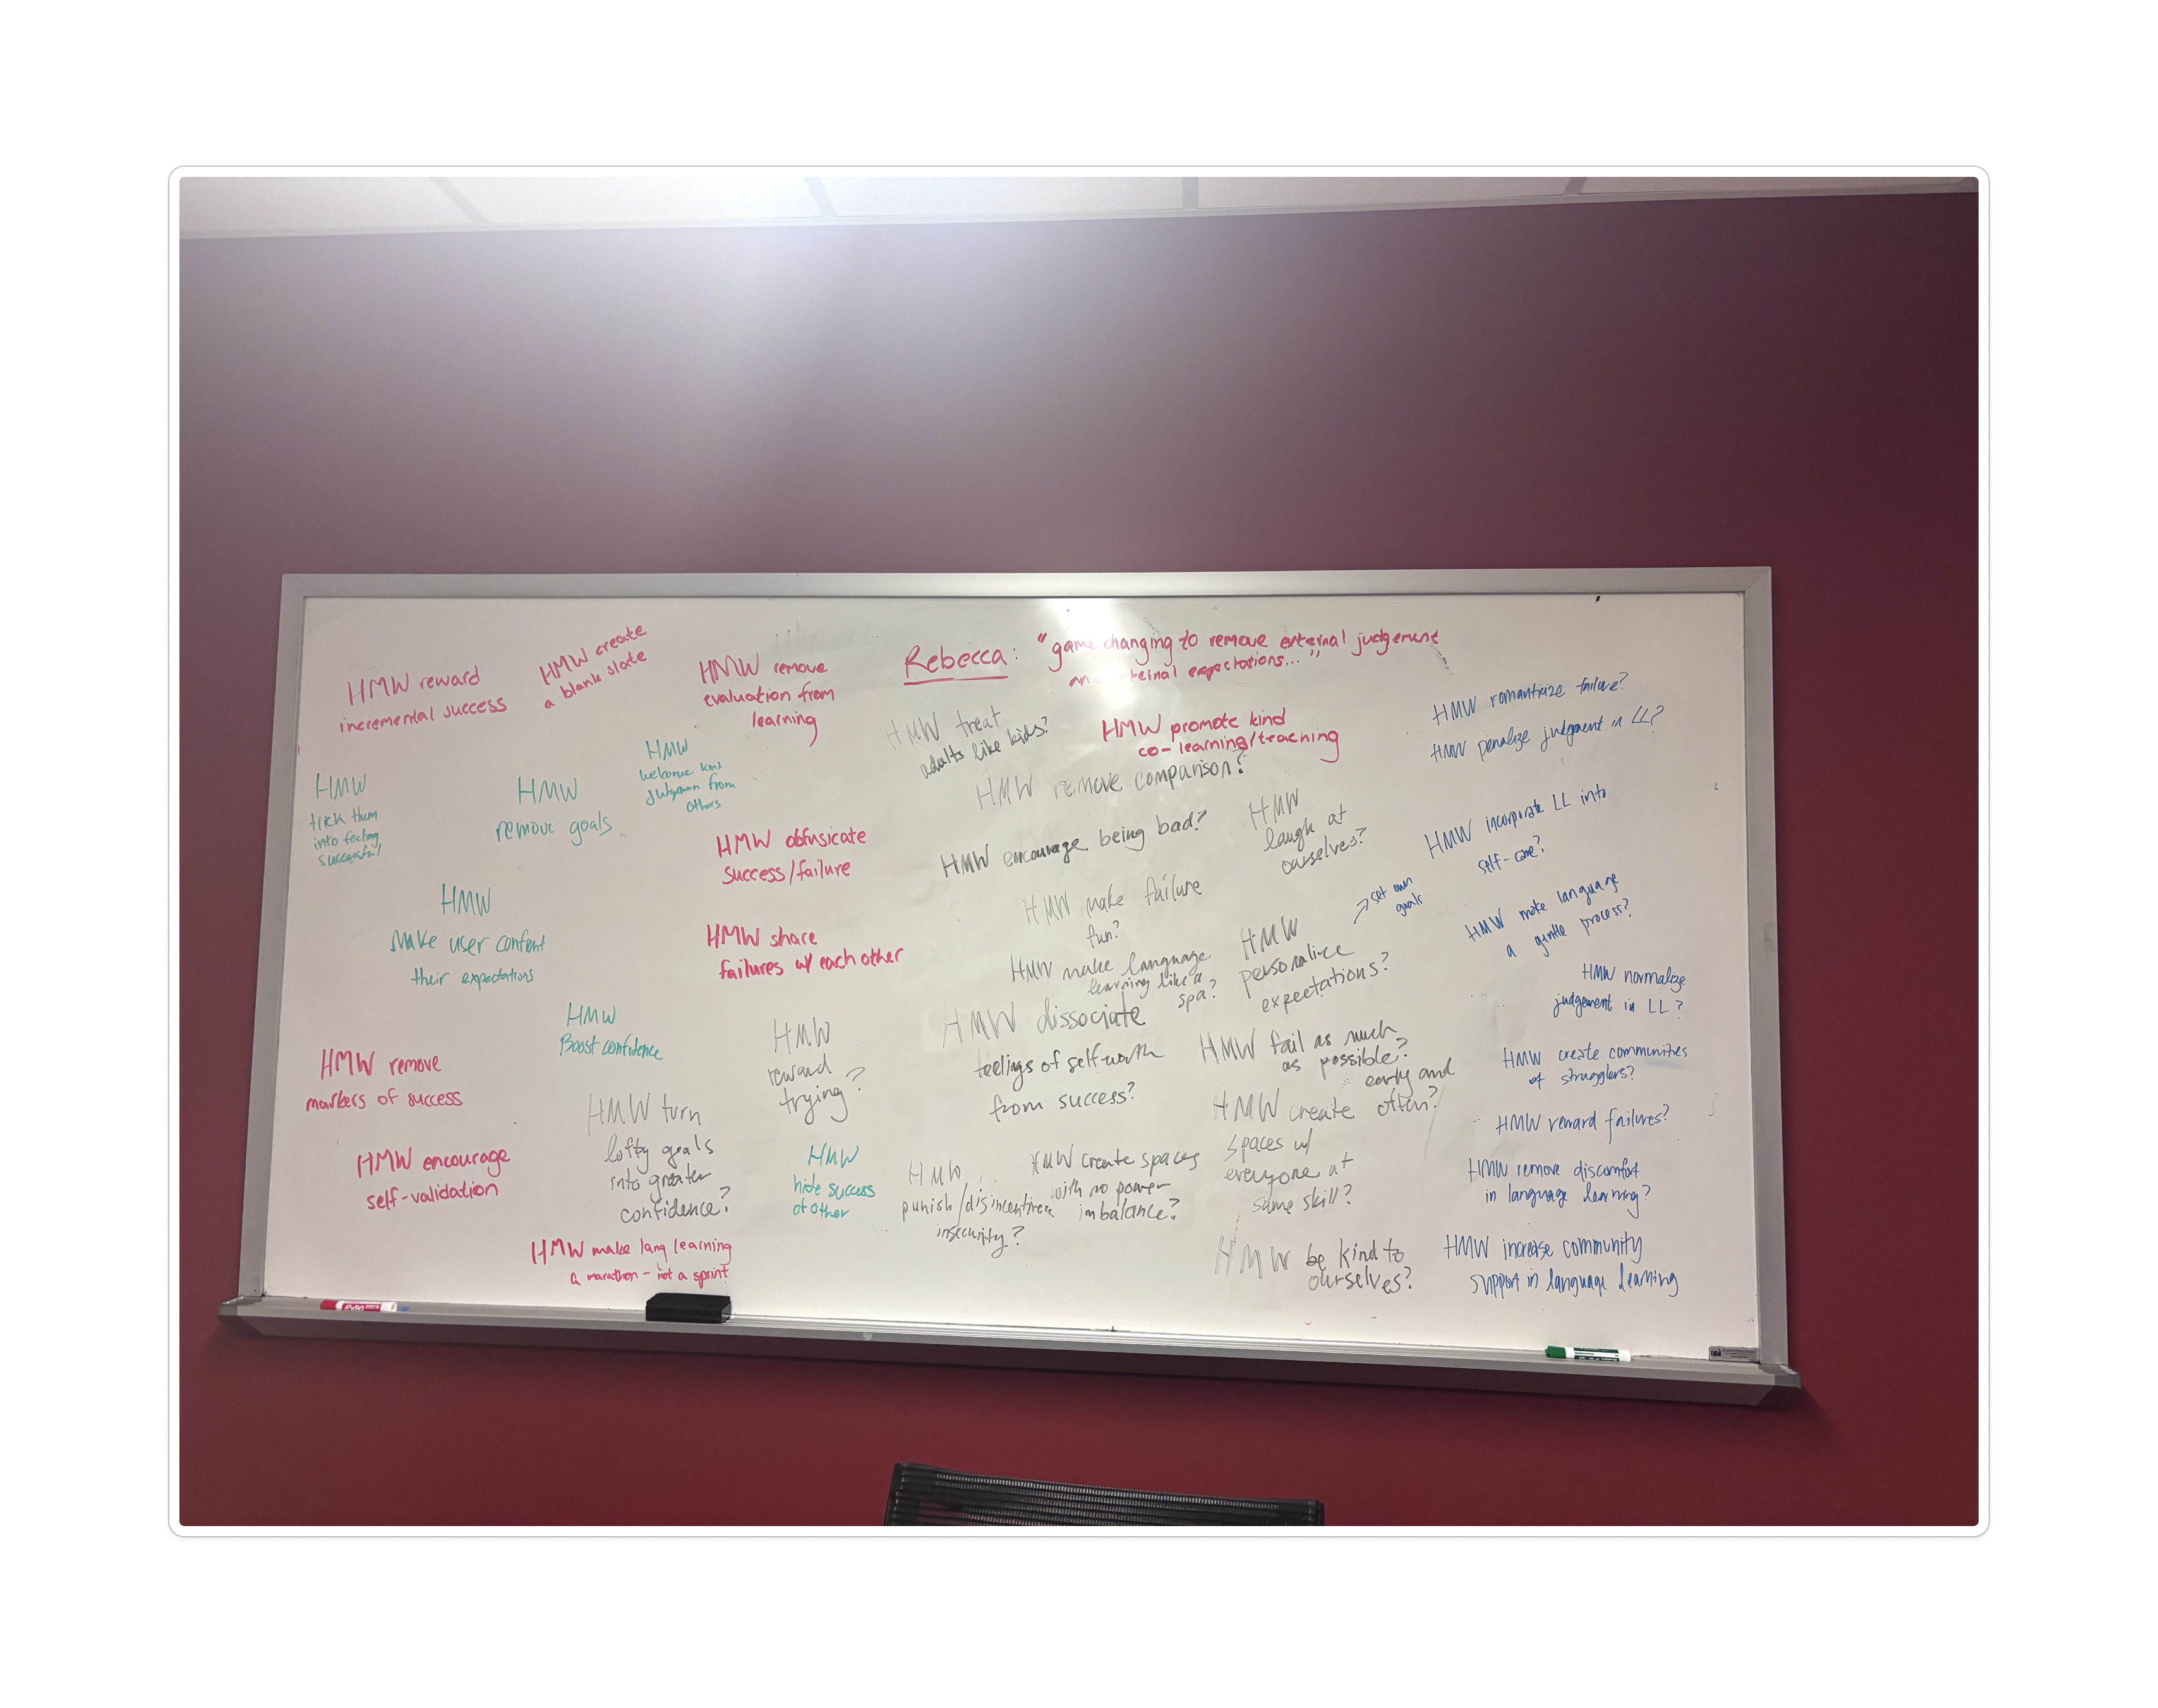 Rebecca: "game changing to remove external judgement
expectations..."
HMW reward
incremental success
HMW create
a blank slate
HMW remove
evaluation from
learning
HMW
trick them
into feeling
successful
HMW
remove goals
HMW
welcome
judgment from
others
HMW obfusicate
success/failure
HMW
Make user confront
their expectations
HMW share
failures w/ each other
HMW
Boost confidence
HMW remove
markers of success
HMW encourage
self-validation
HMW turn
lofty goals
into greater
confidence?
HMW make lang learning
a marathon - not a sprint
HMW
reward
trying?
HMW
hide success
of other
HMW treat
adults like kids?
HMW promote kind
co-learning/teaching
HMW remove comparison?
HMW encourage being bad?
HMW
laugh at
ourselves?
HMW make failure
fun?
HMW make language
learning like a
spa?
HMW
personalize
expectations?
→ set own
goals
HMW dissociate
feelings of self-worth
from success?
HMW fail as much
as possible?
early and
often?
HMW
punish/disincentivize
insecurity?
HMW create spaces
with no power
imbalance?
HMW create
spaces w/
everyone at
same skill?
HMW be kind to
ourselves?
HMW romanticize failure?
HMW penalize judgment in LL?
HMW incorporate LL into
self-care?
HMW make language
a gentle process?
HMW normalize
judgement in LL?
HMW create communities
of strugglers?
HMW reward failures?
HMW remove discomfort
in language learning?
HMW increase community
support in language learning
EXPO